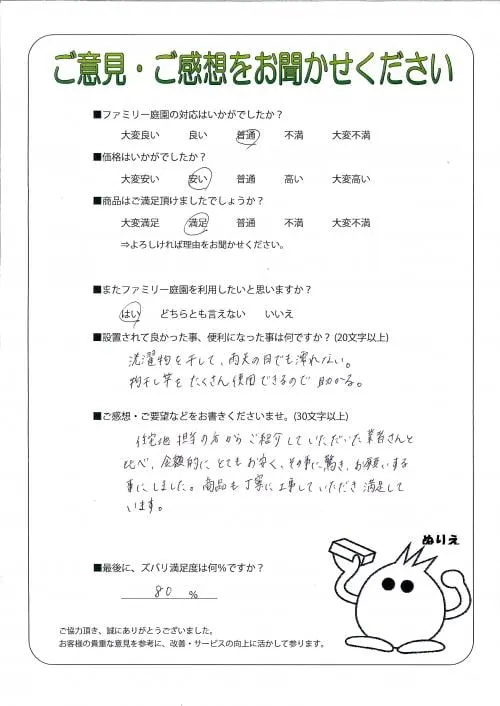 ご意見・ご感想をお聞かせください
■ファミリー庭園の対応はいかがでしたか？
大変良い 良い 普通 不満 大変不満
■価格はいかがでしたか？
大変安い 安い 普通 高い 大変高い
■商品はご満足頂けましたでしょうか？
大変満足 満足 普通 不満 大変不満
⇒よろしければ理由をお聞かせください。
■またファミリー庭園を利用したいと思いますか？
はい どちらとも言えない いいえ
■設置されて良かった事、便利になった事は何ですか？(20文字以上)
洗濯物を干して、雨天の日でも濡れない。
物干し竿をたくさん使用できるので助かる。
■ご感想・ご要望などをお書きくださいませ。(30文字以上)
住宅地担当の方からご紹介していただいた業者さんと
比べ、金額的にとてもお安く、その事に驚き、お願いする
事にしました。商品も丁寧に工事していただき満足して
います。
ぬりえ
■最後に、ズバリ満足度は何％ですか？
80 ％
ご協力頂き、誠にありがとうございました。
お客様の貴重な意見を参考に、改善・サービスの向上に活かして参ります。